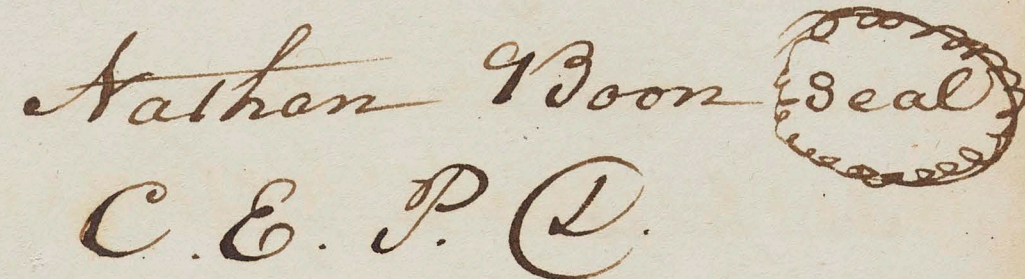 Nathan Boon Seal
C. E. P. D.